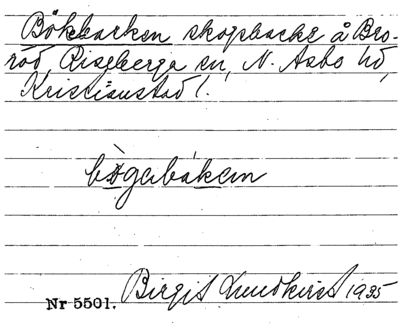 Bökbacken skogsbacke å Bro-
röd, Riseberga sn, N. Åsbo hd,
Kristianstad l.
bø̀gabákan
Birgit Lundkvist 1935
Nr 5501.